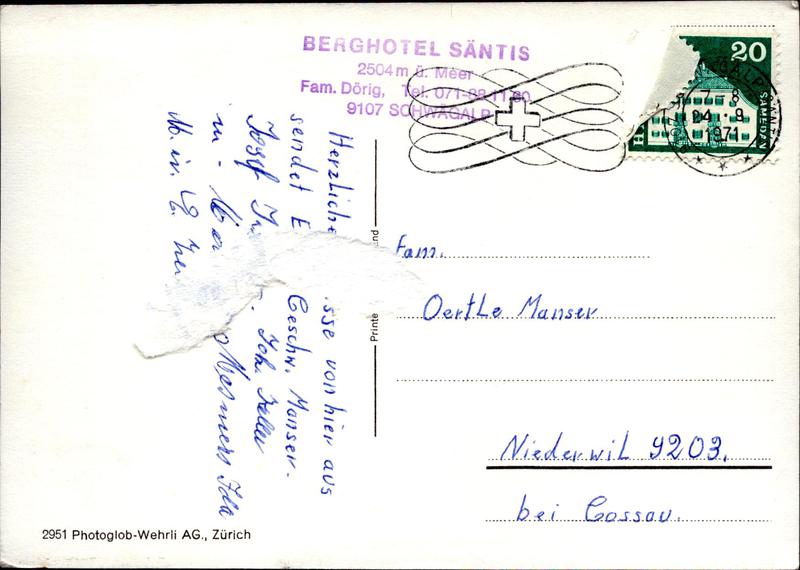 BERGHOTEL SÄNTIS
2504 m ü. Meer
Fam. Dörig, Tel. 071-88 11 60
9107 SCHWÄGALP
20
SAMEDAN
7-8
24.·9
1971
Herzliche sse von hier aus
sendet Geschw. Manser.
Josef Joh. Keller
Messmers Ida
Fam.
Oertle Manser
Niederwil 9203.
bei Gossau.
Printe and
2951 Photoglob-Wehrli AG., Zürich